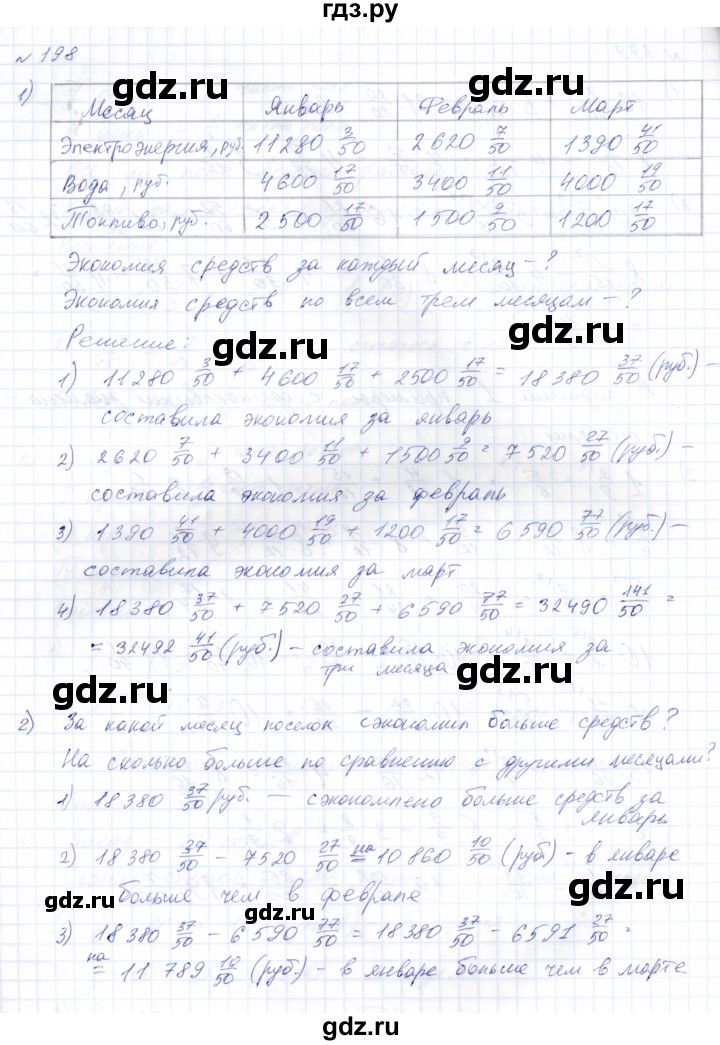 гдз.ру
№ 198
1)
Месяц Январь Февраль Март
Электроэнергия, руб. 11280 3/50 2620 7/50 1390 41/50
Вода, руб. 4600 17/50 3400 11/50 4000 19/50
Топливо, руб. 2500 17/50 1500 9/50 1200 17/50
Экономия средств за каждый месяц – ?
Экономия средств по всем трем месяцам – ?
Решение:
1) 11280 3/50 + 4600 17/50 + 2500 17/50 = 18380 37/50 (руб.) –
составила экономия за январь
2) 2620 7/50 + 3400 11/50 + 1500 9/50 = 7520 27/50 (руб.) –
составила экономия за февраль
3) 1390 41/50 + 4000 19/50 + 1200 17/50 = 6590 77/50 (руб.) –
составила экономия за март
4) 18380 37/50 + 7520 27/50 + 6590 77/50 = 32490 141/50 =
= 32492 41/50 (руб.) – составила экономия за
три месяца
2) За какой месяц поселок сэкономил больше средств?
На сколько больше по сравнению с другими месяцами?
1) 18380 37/50 руб. — сэкономлено больше средств за
январь
2) 18380 37/50 – 7520 27/50 = на 10860 10/50 (руб) – в январе
больше чем в феврале
3) 18380 37/50 – 6590 77/50 = 18380 37/50 – 6591 27/50 =
= на 11789 10/50 (руб.) – в январе больше чем в марте
gdz.ru
gdz.ru
gdz.ru
gdz.ru
gdz.ru
gdz.ru
gdz.ru
gdz.ru
gdz.ru
gdz.ru
gdz.ru
gdz.ru
gdz.ru